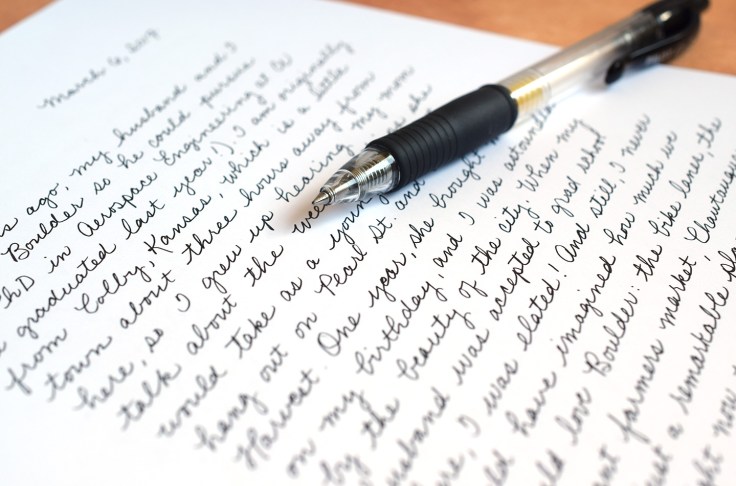 March 9,
s ago, my husband and I
Boulder so he could pursue
PhD in Aerospace Engineering at
graduated last year!) I am originally
from Colby, Kansas, which is a little
town about three hours away from
here, so I grew up hearing my mom
talk about the
would take as a young
hang out on Pearl St. and
Harvest. One year, she brought
on my birthday and I was astounded
by the beauty of the city. When my
husband was accepted to grad school
here, I was elated! And still, I never
ld have imagined how much we
ld love Boulder: the bike lanes, the
farmers market, Chautauqua
just a remarkable
ght now